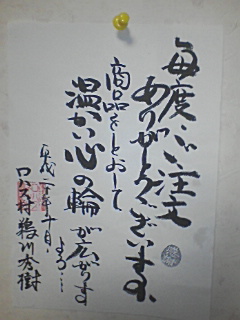 毎度ご注文
ありがとうございます、
商品をとおして
温かい心の輪が広がります
よう…
平成二十年十月、
ロハス村 鵜川秀樹